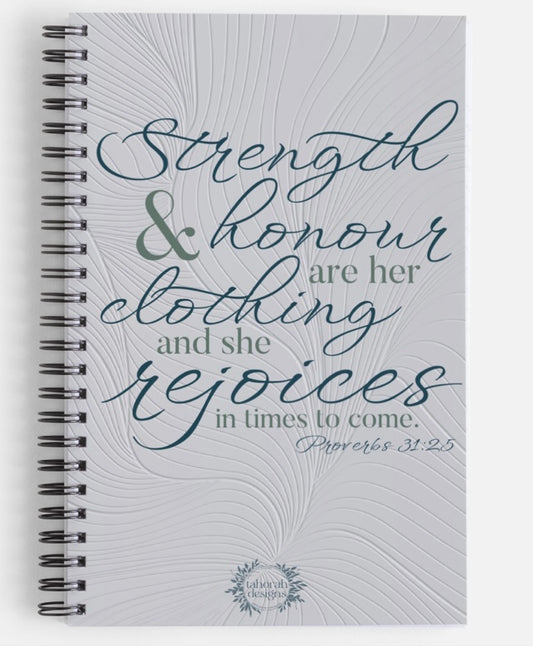 Strength
& honour
are her
clothing
and she
rejoices
in times to come.
Proverbs 31:25
tahorah
designs